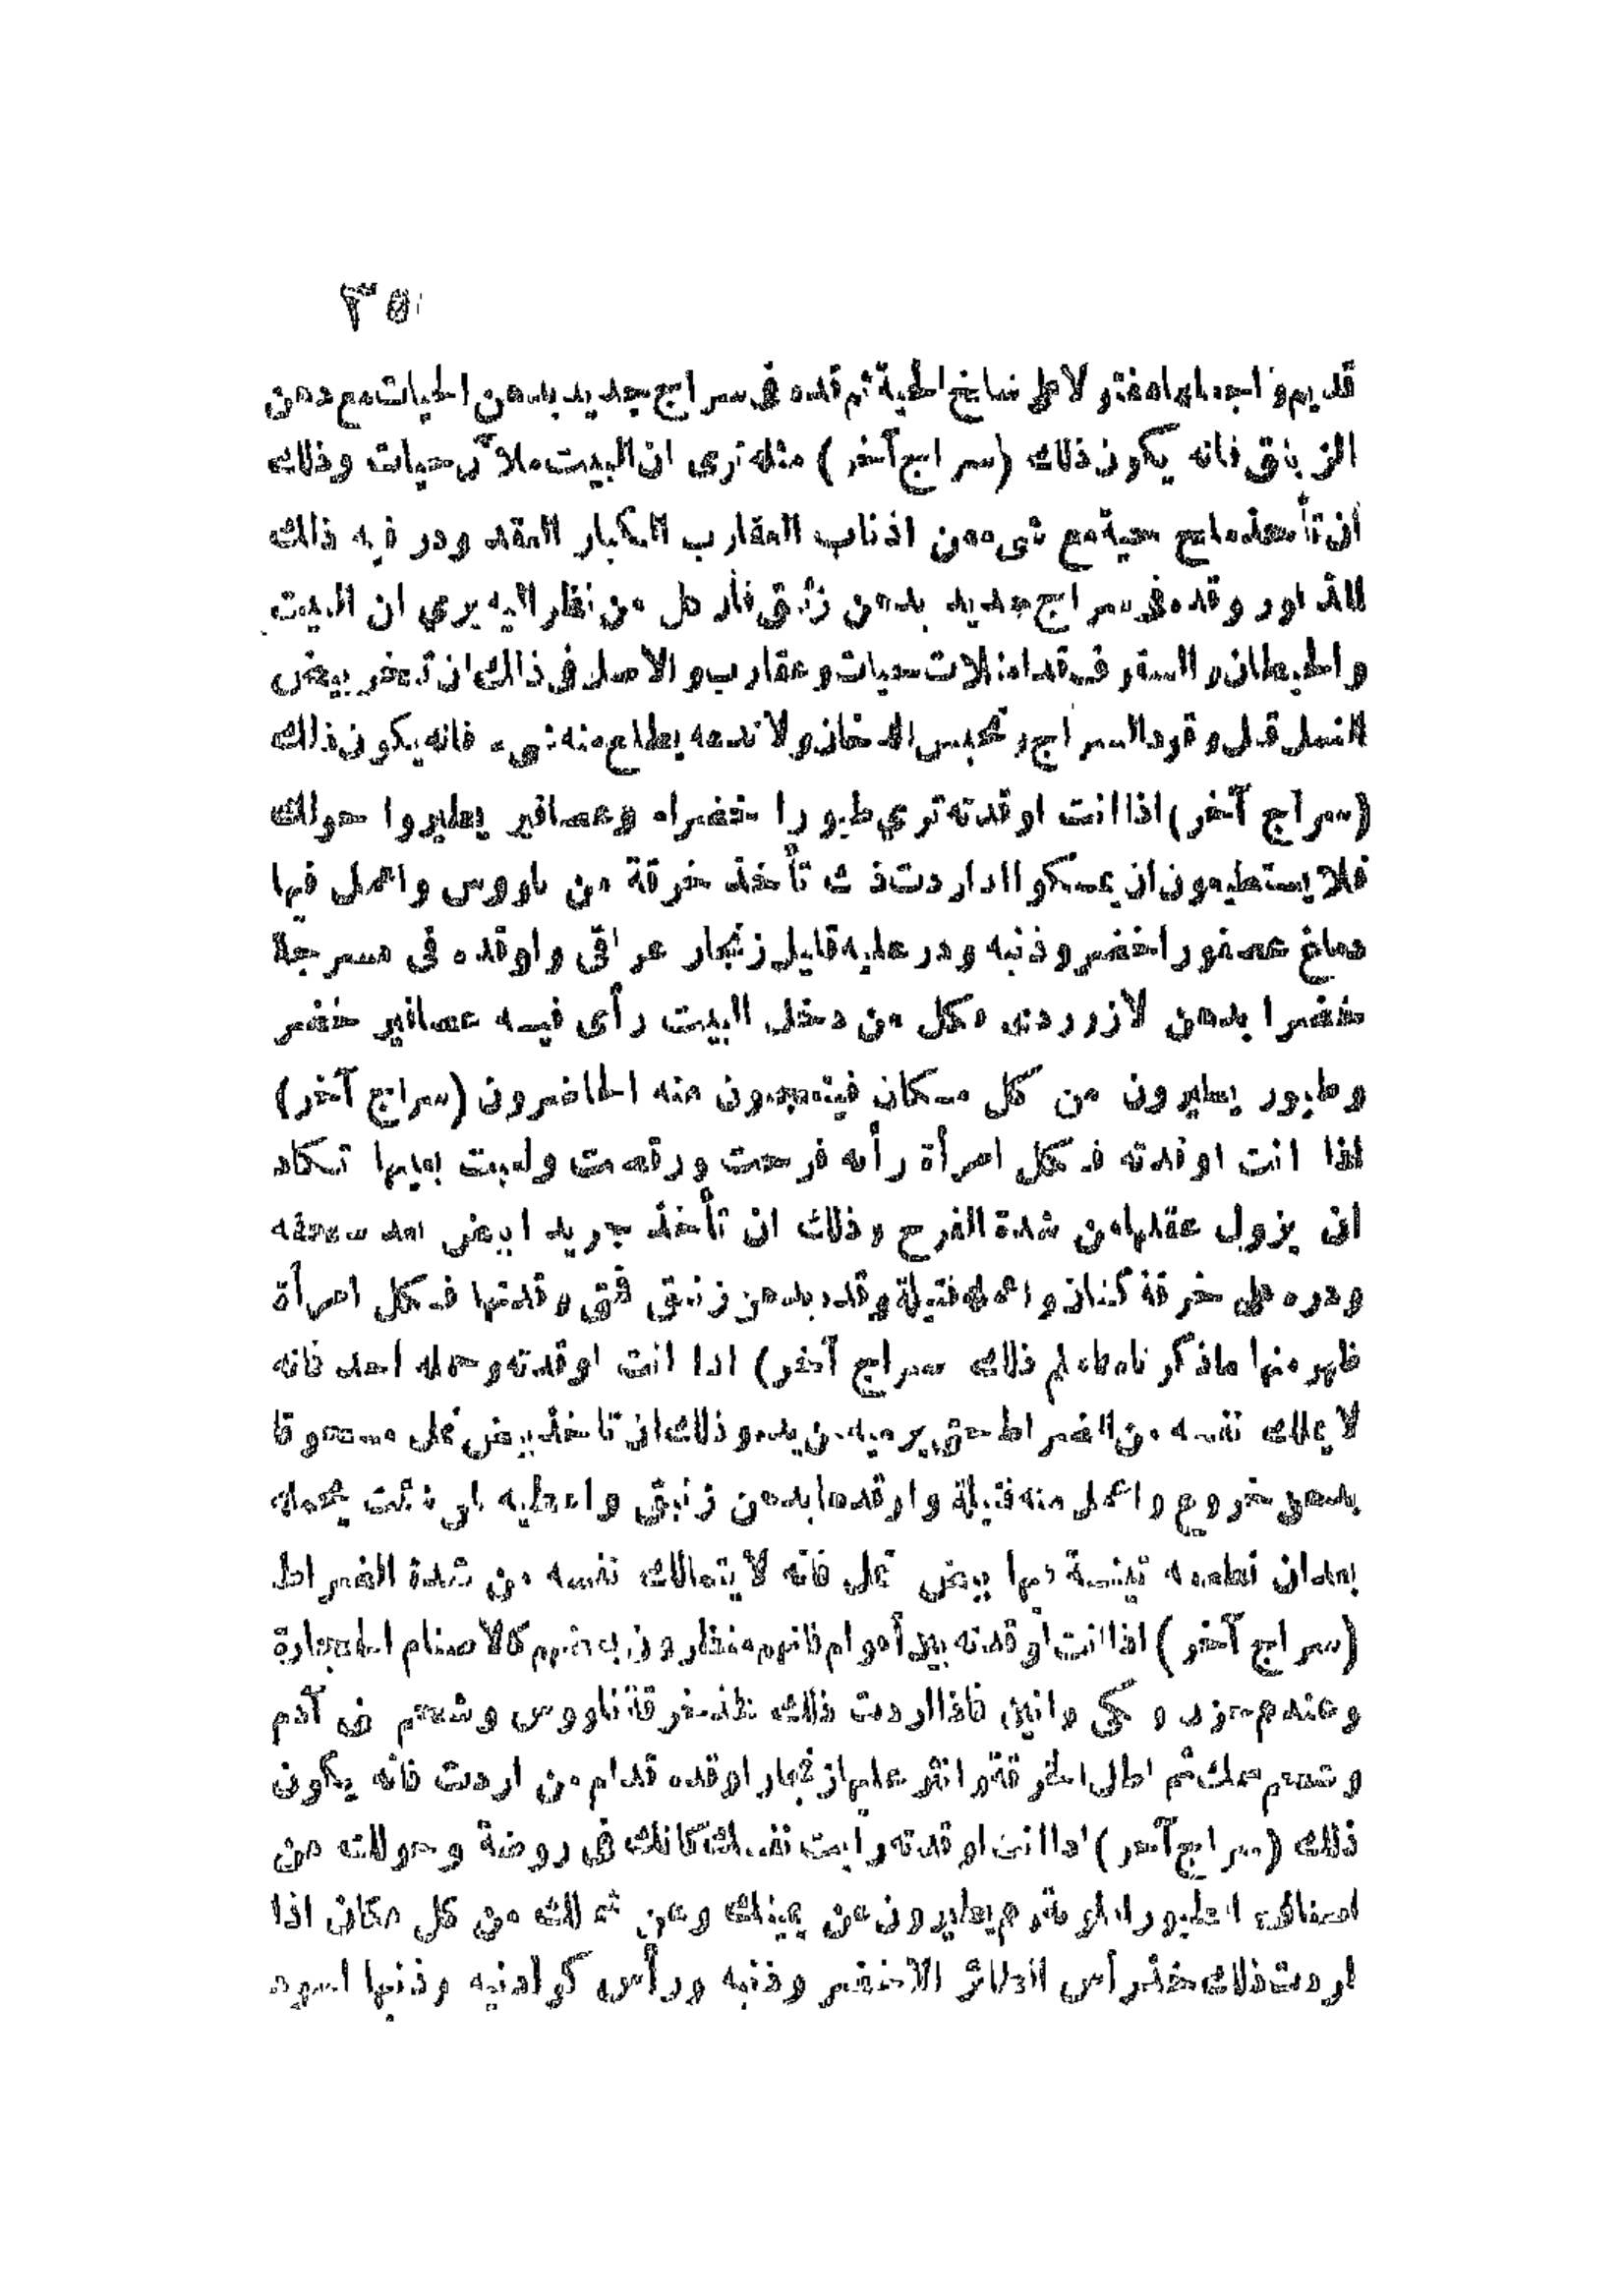 ٣٥
قديم واجعلها مفتولا على سلخ الحية ثم قده في سراج جديد بدهن الحيات مع دهن
الزنباق فانه يكون ذلك (سراج آخر) مثله ترى ان البيت ملآن حيات وذلك
ان تأخذ سلخ حية مع شيء من اذناب العقارب الكبار العقد ودر فيه ذلك
المذكور وقده في سراج جديد بدهن زئبق فأن كل من نظر اليه يري ان البيت
والحيطان والسقوف قد امتلات حيات وعقارب والاصل في ذلك ان تبخر ببيض
النمل قبل وقود السراج وتحبس الدخان ولا تدعه يطلع منه شيء فانه يكون ذلك
(سراج آخر) اذا انت اوقدته تري طيورا خضراء وعصافير يطيروا حولك
فلا يستطيعون ان يمسكوا اذا اردت ذلك تأخذ خرقة من ناووس واعمل فيها
دماغ عصفور اخضر وذنبه ودر عليه قليل زنجار عراقي واوقده في مسرجة
خضرا بدهن لازوردى فكل من دخل البيت رأى فيه عصافير خضر
وطيور يطيرون من كل مكان فيتعجبون منه الحاضرون (سراج آخر)
اذا انت اوقدته فكل امرأة رأته فرحت ورقصت ولعبت بيديها تكاد
ان يزول عقلها من شدة الفرح وذلك ان تأخذ جريد ابيض بعد سحقه
ودره على خرقة كتان واعمله فتيلة وقده بدهن زنبق فتى وقدتها فكل امرأة
ظهر منها ما ذكرناه فاعلم ذلك سراج آخر) اذا انت اوقدته وحمله احد فانه
لا يملك نفسه من الضراط حتى يرميه من يده وذلك ان تاخذ بيض نمل مسحوقا
بدهن خروع واعمل منه فتيلة واوقدها بدهن زنبق واعطيه لمن شئت يحمله
بعد ان تطعمه تينة فيها بيض نمل فانه لا يتمالك نفسه من شدة الضراط
(سراج آخر) اذا انت اوقدته بين أقوام فانهم ينظرون بعضهم كالاصنام الحجارة
وعندهم حزن وبكى وانين فاذا اردت ذلك فخذ خرقة ناووس وشحم بنى آدم
وشحم سمك ثم اطل الخرقة وانثر عليها زنجار اوقده قدام من اردت فانه يكون
ذلك (سراج آخر) اذا انت اوقدته رايت نفسك كانك فى روضة وحولك من
اصناف الطيور الملونة وهم يطيرون عن يمينك وعن شمالك من كل مكان اذا
اردت ذلك خذ رأس الطائر الاخضر وذنبه ورأس كوادنيه وذنبها اسود